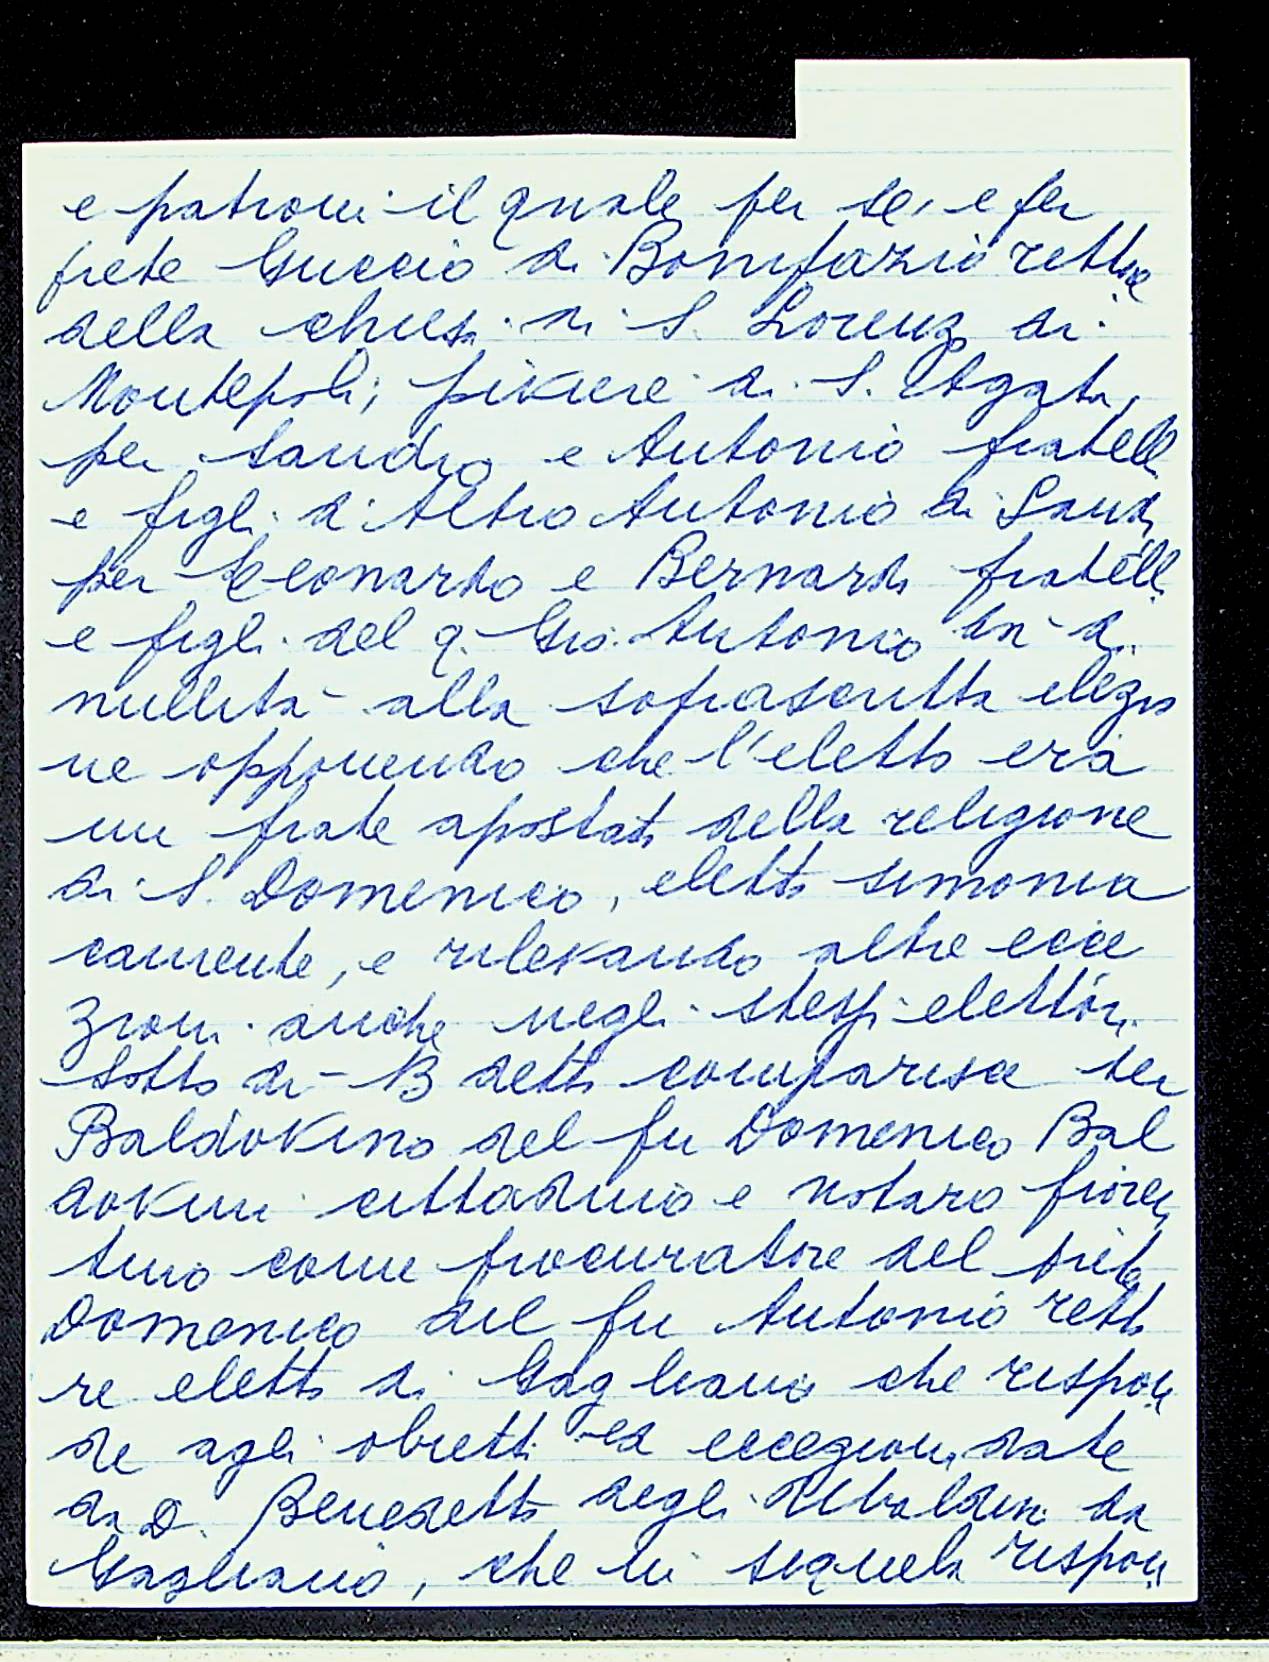 e patroni il quale per se, e per
prete Guccio di Bonifazio rettore
della chiesa di S. Lorenzo di
Montepoli; piviere di S. Agata,
per Sandro e Antonio fratelli
e figli d'Altro Antonio di Sandro
per Leonardo e Bernardo fratelli
e figli del q. Gio. Antonio di
nullità alla soprascritta elezio
ne opponendo che l'eletto era
un frate apostata della religione
di S. Domenico, eletto simonia
camente, e rilevando altre ecce
zioni anche negli stessi elettori.
Sotto di - B detto comparisce ser
Baldovino del fu Domenico Bal
dovini cittadino e notaro fioren
tino come procuratore del prete
Domenico del fu Antonio retto
re eletto di Gagliano che rispon
de agli obietti ed eccezioni date
da D. Benedetto degli Ubaldini da
Gagliano, che in sequela rispon